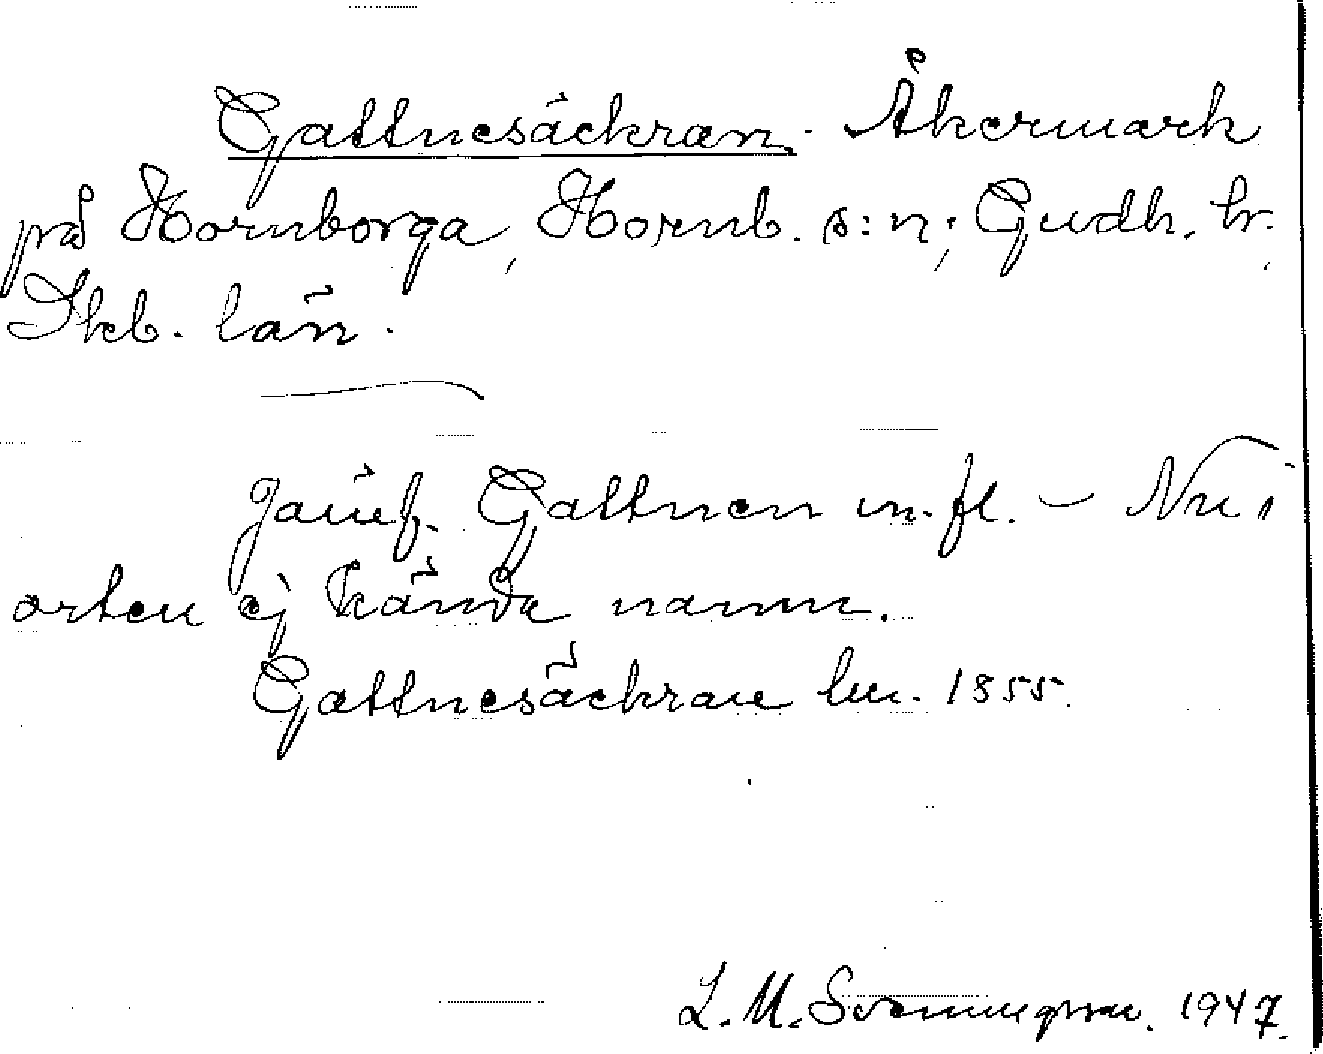 Gattnesäckran. Åkermark
på Hornborga, Hornb. s:n; Gudh. hr.
Skb. län.
Jämf. Gattnen m. fl. – Nu i
orten ej kända namn.
Gattnesäckran lm. 1855.
L. M. Svenungsson. 1947.